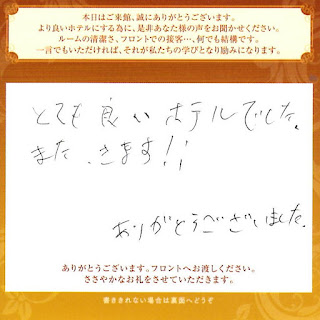 本日はご来館、誠にありがとうございます。
より良いホテルにする為に、是非あなた様の声をお聞かせください。
ルームの清潔さ、フロントでの接客…、何でも結構です。
一言でもいただければ、それが私たちの学びとなり励みになります。
とても良いホテルでした。
また、きます!!
ありがとうございました。
ありがとうございます。フロントへお渡しください。
ささやかなお礼をさせていただきます。
書ききれない場合は裏面へどうぞ